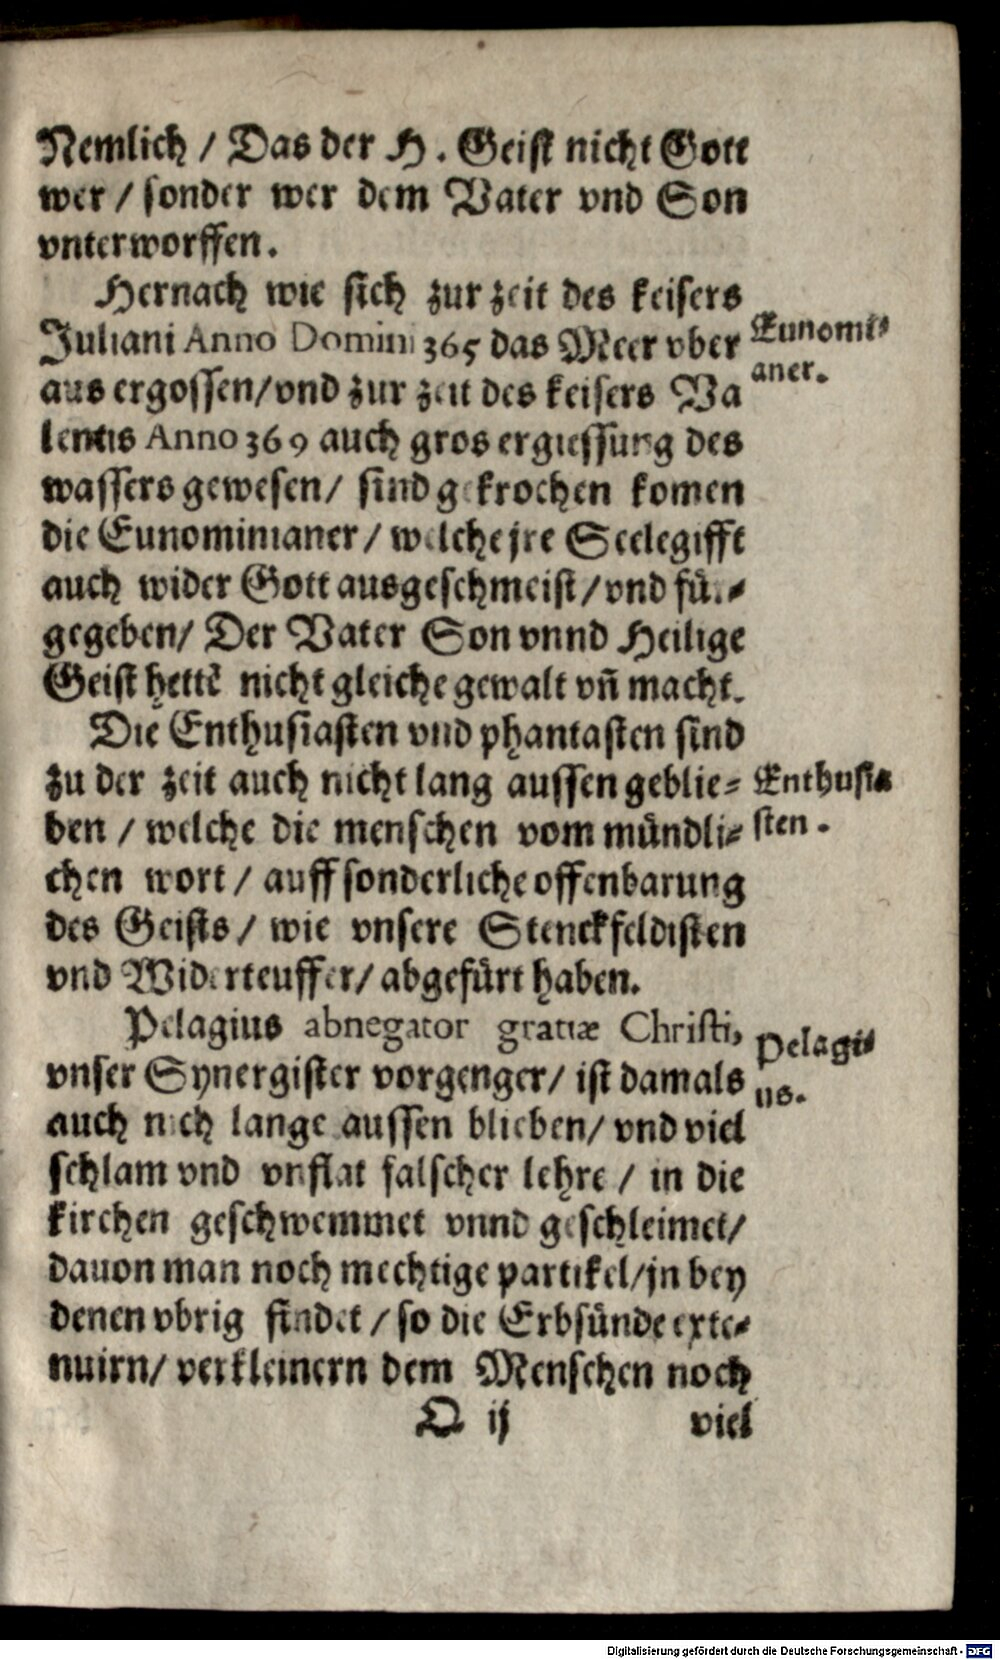 Nemlich / Das der H. Geist nicht Gott
wer / sonder wer dem Vater vnd Son
vnterworffen.
Hernach wie sich zur zeit des keisers
Juliani Anno Domini 365 das Meer vber
aus ergossen/vnd zur zeit des keisers Va
lentis Anno 369 auch gros ergiessung des
wassers gewesen/ sind gekrochen komen
die Eunominianer / welche jre Seelegifft
auch wider Gott ausgeschmeist/vnd für-
gegeben/ Der Vater Son vnnd Heilige
Geist hettē nicht gleiche gewalt vn̄ macht.
Die Enthusiasten vnd phantasten sind
zu der zeit auch nicht lang aussen geblie-
ben / welche die menschen vom mündli-
chen wort / auff sonderliche offenbarung
des Geists / wie vnsere Stenckfeldisten
vnd Widerteuffer/ abgefürt haben.
Pelagius abnegator gratiæ Christi,
vnser Synergister vorgenger/ ist damals
auch nich lange aussen blieben/ vnd viel
schlam vnd vnflat falscher lehre / in die
kirchen geschwemmet vnnd geschleimet/
dauon man noch mechtige partikel/jn bey
denen vbrig findet / so die Erbsünde exte-
nuirn/ verkleinern dem Menschen noch
O ij viel
Eunomi-
aner.
Enthusia
sten.
Pelagi-
us.
Digitalisierung gefördert durch die Deutsche Forschungsgemeinschaft - DFG